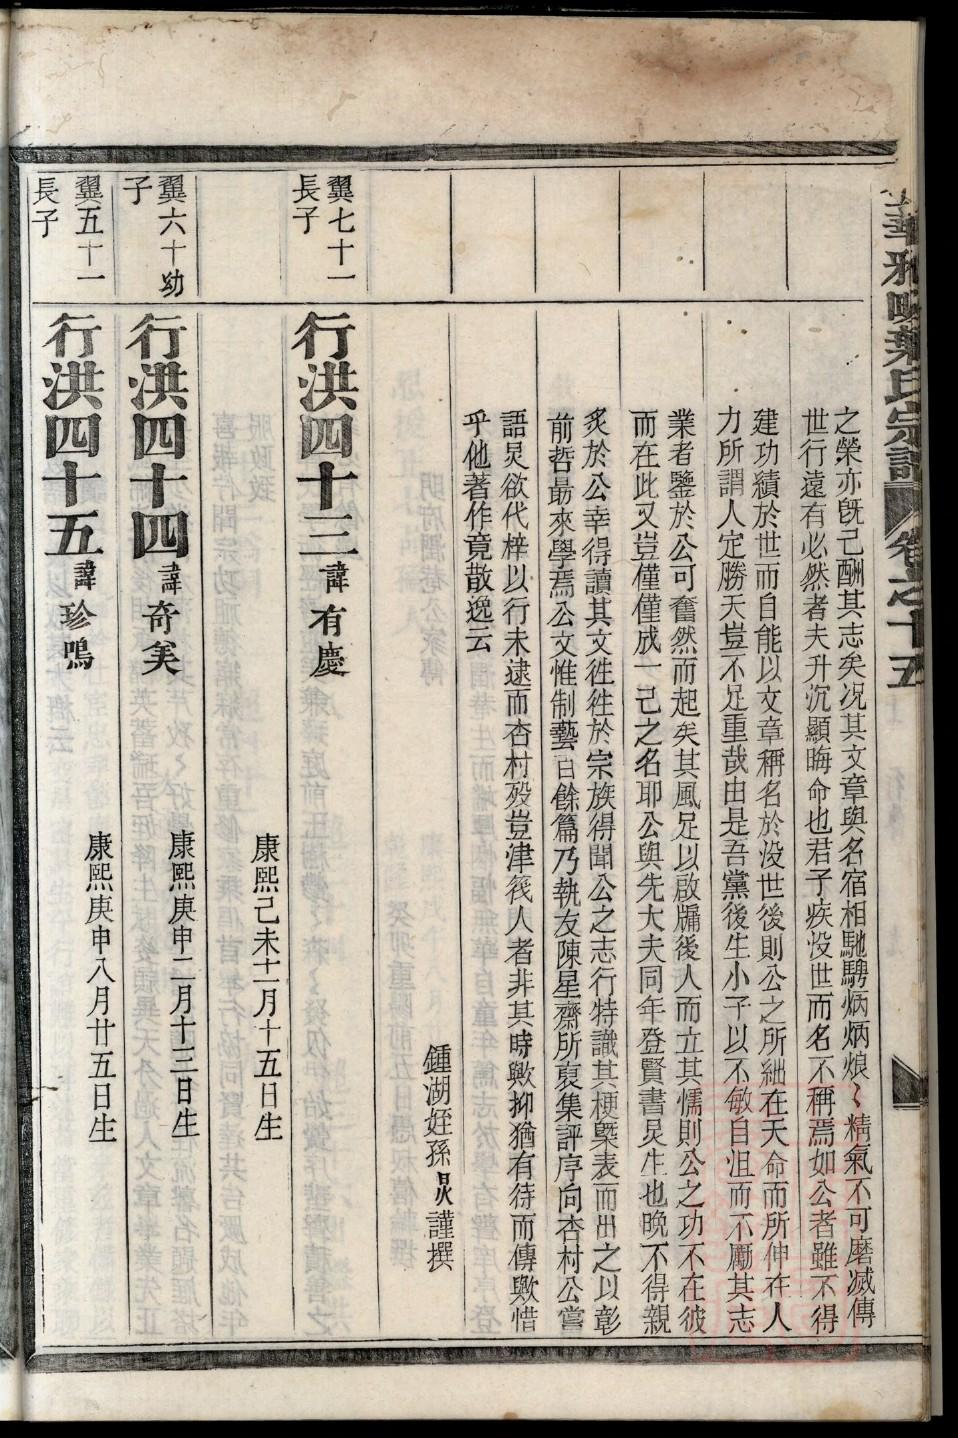 華雅畈葉氏宗譜 卷之十五
之榮亦旣已酬其志矣况其文章與名宿相馳騁炳炳烺〻精氣不可磨滅傳
世行遠有必然者夫升沉顯晦命也君子疾沒世而名不稱焉如公者雖不得
建功績於世而自能以文章稱名於沒世後則公之所絀在天命而所伸在人
力所謂人定勝天豈不足重哉由是吾黨後生小子以不敏自沮而不厲其志
業者鑒於公可奮然而起矣其風足以啟牖後人而立其懦則公之功不在彼
而在此又豈僅僅成一己之名耶公與先大夫同年登賢書炅生也晚不得親
炙於公幸得讀其文徃徃於宗族得聞公之志行特識其梗槩表而出之以彰
前哲勗來學焉公文惟制藝百餘篇乃執友陳星齋所裒集評序向杏村公嘗
語炅欲代梓以行未逮而杏村歿豈津筏人者非其時歟抑猶有待而傳歟惜
乎他著作竟散逸云
鍾湖姪孫炅謹撰
翼七十一
長子
行洪四十三 諱有慶
康熙己未十一月十五日生
翼六十幼
子
行洪四十四 諱奇㒵
康熙庚申二月十三日生
翼五十一
長子
行洪四十五 諱珍鳴
康熙庚申八月廿五日生